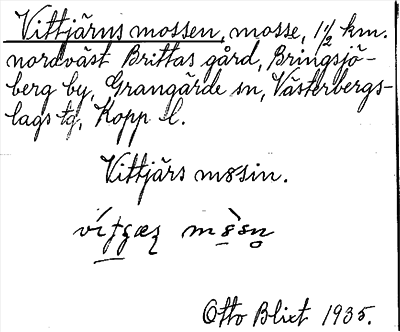 Vittjärns mossen, mosse, 1½ km.
nordväst Brittas gård, Bringsjö-
berg by, Grangärde sn, Västerbergs-
lags tg, Kopp. l.
Vittjärs m8sin.
Otto Blixt 1935.